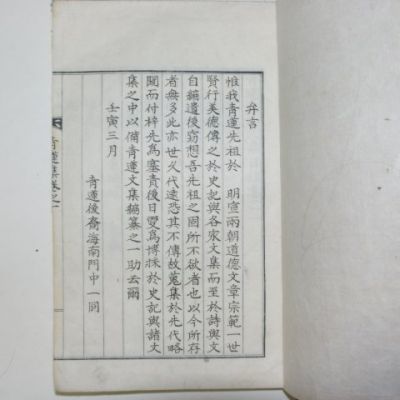 弁言
惟我青蓮先祖於 明宣兩朝道德文章宗範一世
賢行美德傳之於史記與各家文集而至於詩與文
自編遺後竊想吾先祖之固所不欲者也以今所存
者無多此亦世久代遠恐其不傳故蒐集於先代略
閱而付梓先爲塞責後日雙爲博採於史記與諸文
集之中以備青蓮文集編纂之一助云爾
壬寅三月
青蓮後裔海南門中一同
青蓮集卷之一